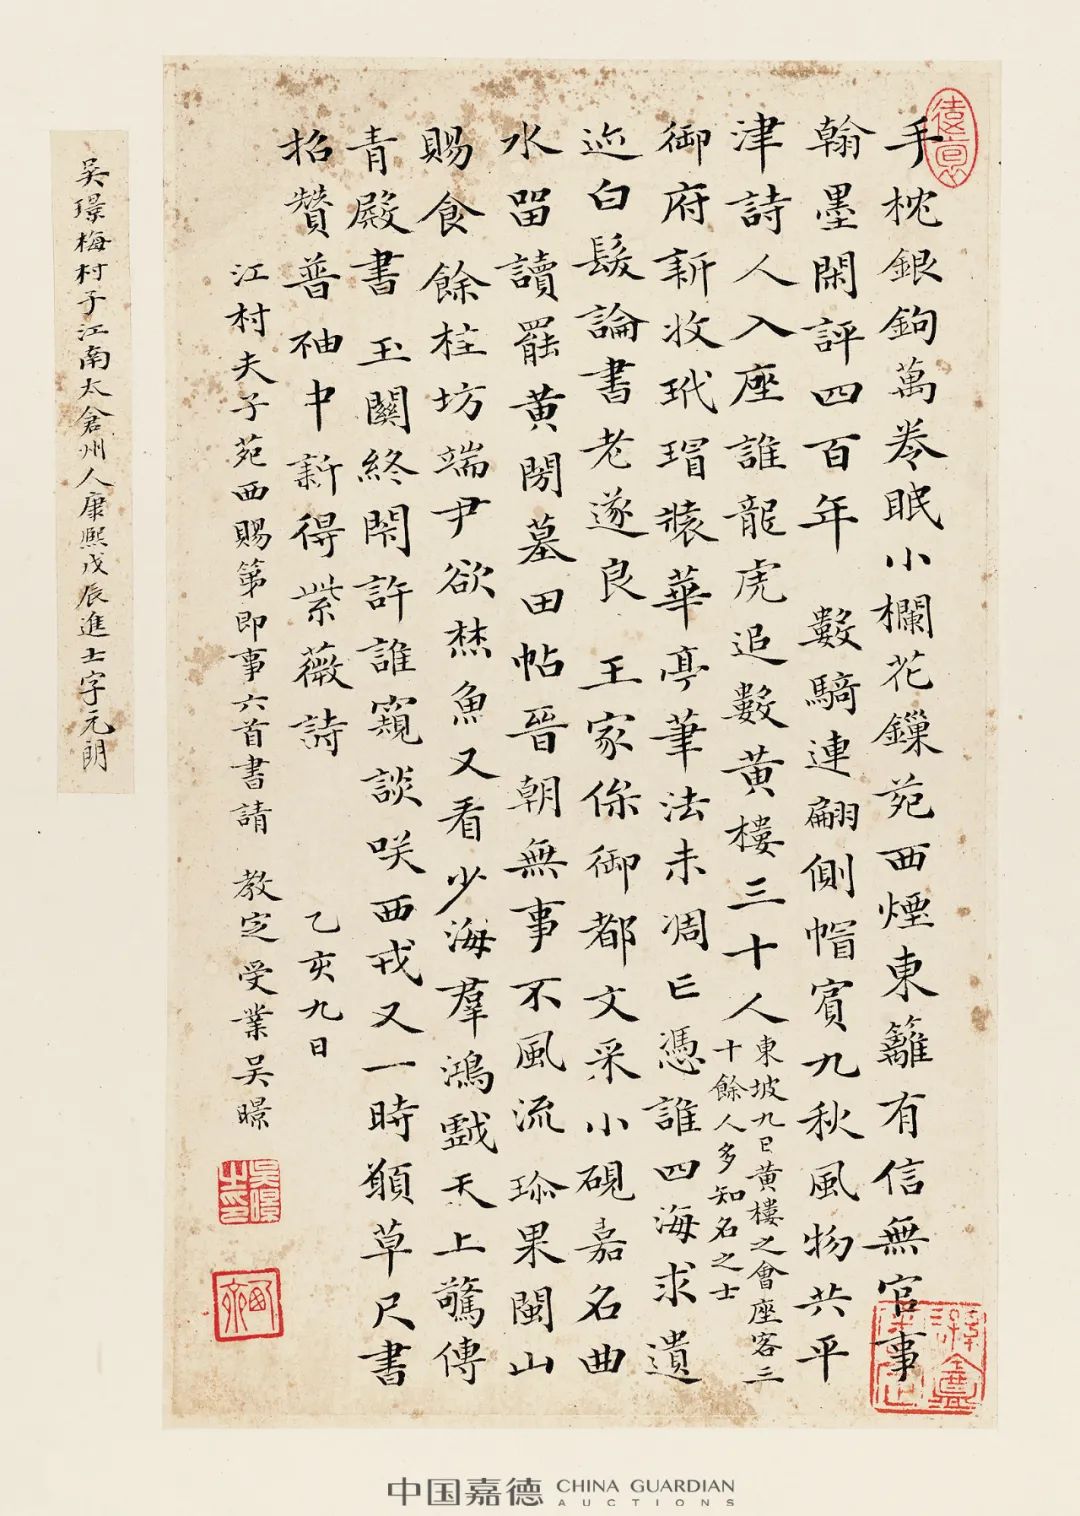 手枕銀鉤萬卷眠小欄花鏁苑西煙東籬有信無官事
翰墨閑評四百年 數騎連翩側帽賓九秋風物共平
津詩人入座誰龍虎追數黃樓三十人
東坡九日黃樓之會座客三
十餘人多知名之士
御府新收玳瑁裝華亭筆法未凋亡憑誰四海求遺
迹白髮論書老遂良 王家係御都文采小硯嘉名曲
水留讀罷黃閣墓田帖晉朝無事不風流 珎果閩山
賜食餘柱坊端尹欲焚魚又看少海羣鴻戲天上驚傳
青殿書 玉關終閉許誰窺談咲西戎又一時願草尺書
招贊普袖中新得紫薇詩
乙亥九日
江村夫子苑西賜第即事六首書請 教定受業吳暻
吳暻之印
吳璟梅村子江南太倉州人康熙戊辰進士字元朗
中国嘉德 CHINA GUARDIAN
AUCTIONS